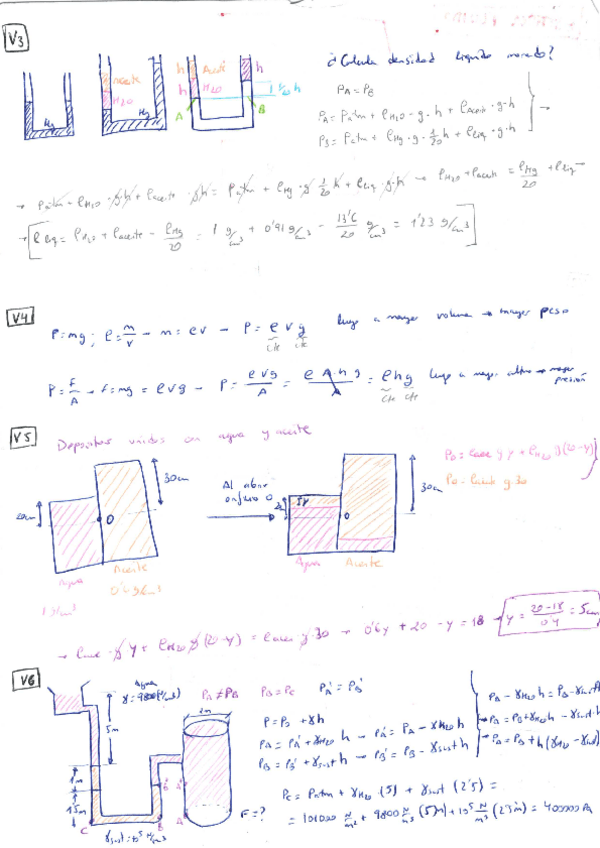 V3
¿Calcula densidad líquido morado?
Aceite
H₂O
Hg
Hg
h
Aceite
h
h
H₂O
1/20 h
A
B
P_A = P_B
P_A = P_atm + ρ_H₂O · g · h + ρ_Aceite · g · h
P_B = P_atm + ρ_Hg · g · 1/20 h + ρ_Liq · g · h
→ P_atm + ρ_H₂O · g · h + ρ_aceite · g · h = P_atm + ρ_Hg · g · 1/20 h + ρ_Liq · g · h → ρ_H₂O + ρ_aceite = ρ_Hg/20 + ρ_Liq →
→ ρ_Liq = ρ_H₂O + ρ_aceite - ρ_Hg/20 = 1 g/cm³ + 0'91 g/cm³ - 13'6/20 g/cm³ = 1'23 g/cm³
V4
P = mg ; ρ = m/V → m = ρV → P = ρVg luego a mayor volumen → mayor peso
cte cte
P = F/A → F = mg = ρVg → P = ρVg/A = ρAhg/A = ρhg luego a mayor altura → mayor presión
cte cte
V5
Depositos unidos con agua y aceite
30cm
20cm
O
Agua
1 g/cm³
Aceite
0'6 g/cm³
Al abrir
orificio O
y
O
30cm
Agua
Aceite
P_O = ρ_ace g y + ρ_H₂O g (20-y)
P_O = ρ_aceite g · 30
→ ρ_ace · g · y + ρ_H₂O · g (20-y) = ρ_aceite g · 30 → 0'6y + 20 - y = 18 → y = (20-18)/0'4 = 5cm
V6
Agua
γ = 9800
5m
1m
1'5m
C
B
B'
A'
A
2m
F = ?
γ_sust = 10⁵ N/m³
P_A ≠ P_B P_B = P_C P_A' = P_B'
P = P_0 + γh
P_A = P_A' + γ_H₂O h → P_A' = P_A - γ_H₂O h
P_B = P_B' + γ_sust h → P_B' = P_B - γ_sust h
P_A - γ_H₂O h = P_B - γ_sust h
→ P_A = P_B + γ_H₂O h - γ_sust · h
→ P_A = P_B + h(γ_H₂O - γ_sust)
P_C = P_atm + γ_H₂O (5) + γ_sust (2'5) =
= 101000 N/m² + 9800 N/m³ (5m) + 10⁵ N/m³ (2'5m) = 400000